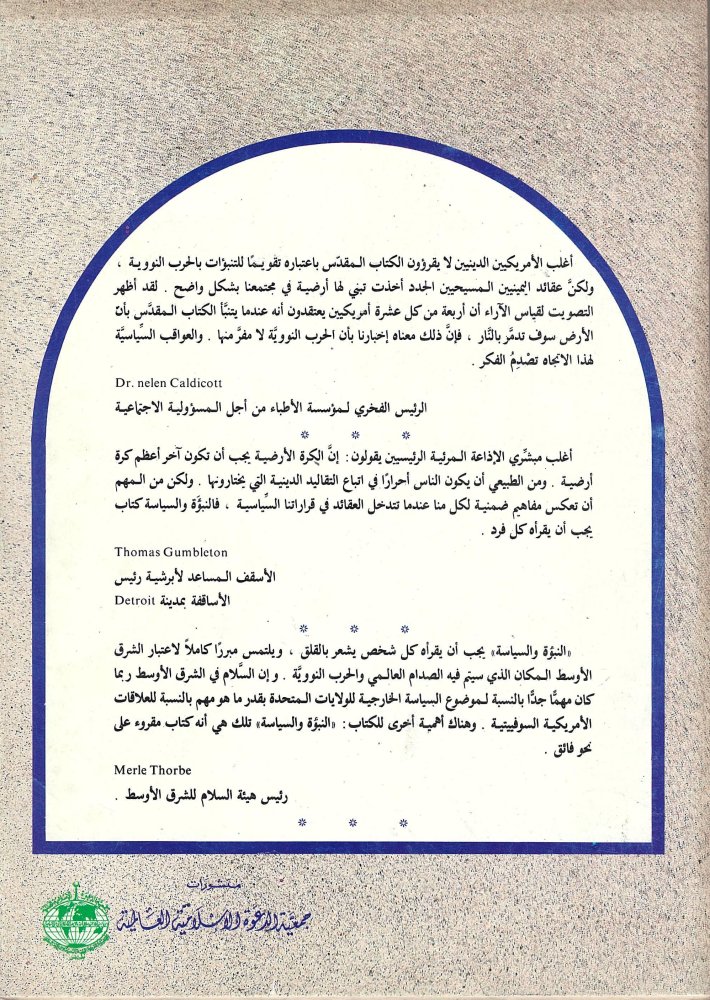 أغلب الأمريكيين الدينيين لا يقرؤون الكتاب المقدّس باعتباره تقويمًا للتنبؤات بالحرب النووية ،
ولكنَّ عقائد اليمينيين المسيحيين الجدد أخذت تبني لها أرضية في مجتمعنا بشكل واضح . لقد أظهر
التصويت لقياس الآراء أن أربعة من كل عشرة أمريكيين يعتقدون أنه عندما يتنبَّأ الكتاب المقدَّس بأنّ
الأرض سوف تدمَّر بالنَّار ، فإنَّ ذلك معناه إخبارنا بأن الحرب النوويَّة لا مفرَّ منها . والعواقب السِّياسيَّة
لهذا الاتجاه تصْدِمُ الفكر .
Dr. nelen Caldicott
الرئيس الفخري لمؤسسة الأطباء من أجل المسؤولية الاجتماعية
* * *
أغلب مبشِّري الإذاعة المرئية الرئيسيين يقولون: إنَّ الكرة الأرضية يجب أن تكون آخر أعظم كرة
أرضية . ومن الطبيعي أن يكون الناس أحرارًا في اتباع التقاليد الدينية التي يختارونها . ولكن من المهم
أن تعكس مفاهيم ضمنية لكل منا عندما تتدخل العقائد في قراراتنا السِّياسية ، فالنبوَّة والسياسة كتاب
يجب أن يقرأه كل فرد .
Thomas Gumbleton
الأسقف المساعد لأبرشية رئيس
الأساقفة بمدينة Detroit
* * *
«النبوّة والسياسة» يجب أن يقرأه كل شخص يشعر بالقلق ، ويلتمس مبررًا كاملاً لاعتبار الشرق
الأوسط المكان الذي سيتم فيه الصدام العالمي والحرب النوويَّة . وإن السَّلام في الشرق الأوسط ربما
كان مهمًّا جدًّا بالنسبة لموضوع السياسة الخارجية للولايات المتحدة بقدر ما هو مهم بالنسبة للعلاقات
الأمريكية السوفييتية . وهناك أهمية أخرى للكتاب: «النبوّة والسياسة» تلك هي أنه كتاب مقروء على
نحو فائق .
Merle Thorbe
رئيس هيئة السلام للشرق الأوسط .
* * *
منشورات
جمعيَّة الدعوة الإسلاميَّة العَالميَّة